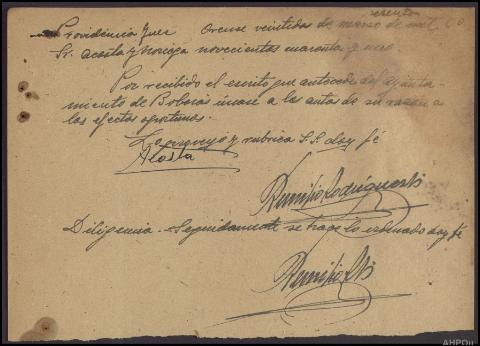 Providencia Juez Orense veintidos de marzo de mil
Sr. Acosta y Noriega novecientos cuarenta y uno
Por recibido el escrito que antecede del ayunta-
miento de Boborás unase a los autos de su razon a
los efectos oportunos.
Lo proveyó y rubrica S.S. doy fé
Acosta
Diligencia.- Seguidamente se hace lo ordenado doy fé
AHPOu